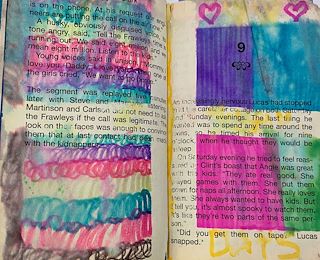 is on the phone. At his request our engi-
neers are putting the call on the air."
A husky, obviously disguised
tone angry, said, "Tell the Frawleys time is
running out. We said eight million
mean eight million. Listen to the
Young voices said in unison,
love you. Daddy, I love you." One of
the girls cried, "We want to go
The segment was replayed five minutes
later with Steve and Margaret
Martinson and Carlson did not need to ask
the Frawleys if the call was legitimate. The
look on their faces was enough to convince
them that at last contact had been made
with the kidnappers.
9
An increasingly nervous Lucas had stopped
Saturday
and Sunday evenings. The last thing he
wanted was to spend any time around the
twins, so he timed his arrival for nine
o'clock, when he thought they would be
asleep.
On Saturday evening he tried to feel reas-
sured at Clint's boast that Angie was great
with the kids. "They ate real good. She
played games with them. She put them
down for naps all afternoon. She really loves
them. She always wanted to have kids. But
I tell you, it's almost spooky to watch them.
It's like they're two parts of the same per-
son."
"Did you get them on tape?" Lucas
snapped.